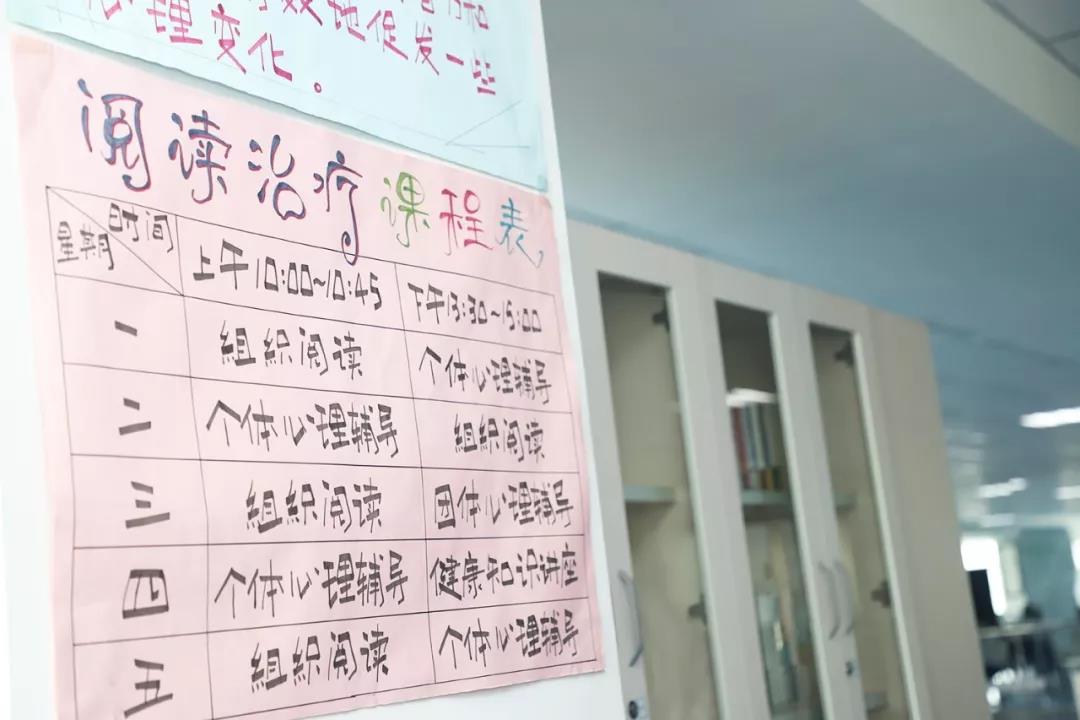 效地促发一些
心理变化。
阅读治疗课程表
时间
星期
上午10:00~10:45
下午13:30~15:00
一
组织阅读
个体心理辅导
二
个体心理辅导
组织阅读
三
组织阅读
团体心理辅导
四
个体心理辅导
健康知识讲座
五
组织阅读
个体心理辅导